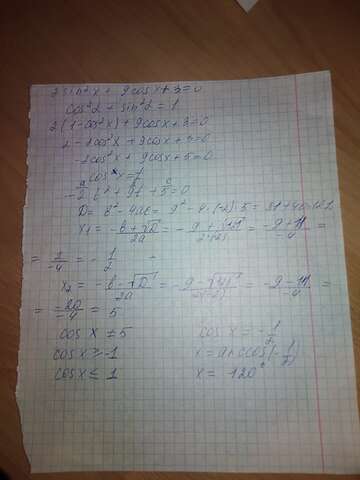 2 sin²x + 9cosx + 3 = 0
cos²α + sin²α = 1
2(1 - cos²x) + 9cosx + 3 = 0
2 - 2cos²x + 9cosx + 3 = 0
-2cos²x + 9cosx + 5 = 0
cos x = t
-2t² + 9t + 5 = 0
D = b² - 4ac = 9² - 4·(-2)·5 = 81 + 40 = 121
x₁ = (-b + √D)/2a = (-9 + √121)/(2·(-2)) = (-9 + 11)/(-4) =
= 2/(-4) = -1/2
x₂ = (-b - √D)/2a = (-9 - √121)/(2·(-2)) = (-9 - 11)/(-4) =
= (-20)/(-4) = 5
cos x ≠ 5 cos x = -1/2
cos x ≥ -1 x = arccos(-1/2)
cos x ≤ 1 x = 120°